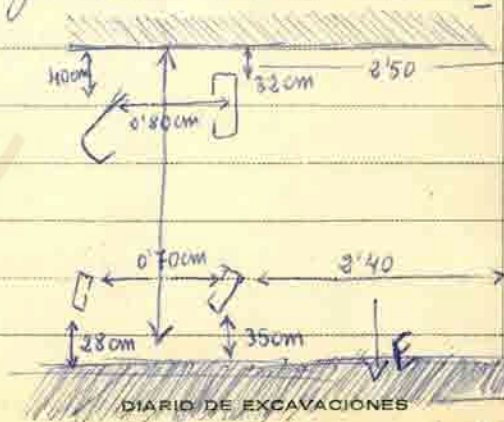 40cm
32cm
2'50
0'80cm
0'70cm
2'40
28cm
35cm
E
DIARIO DE EXCAVACIONES